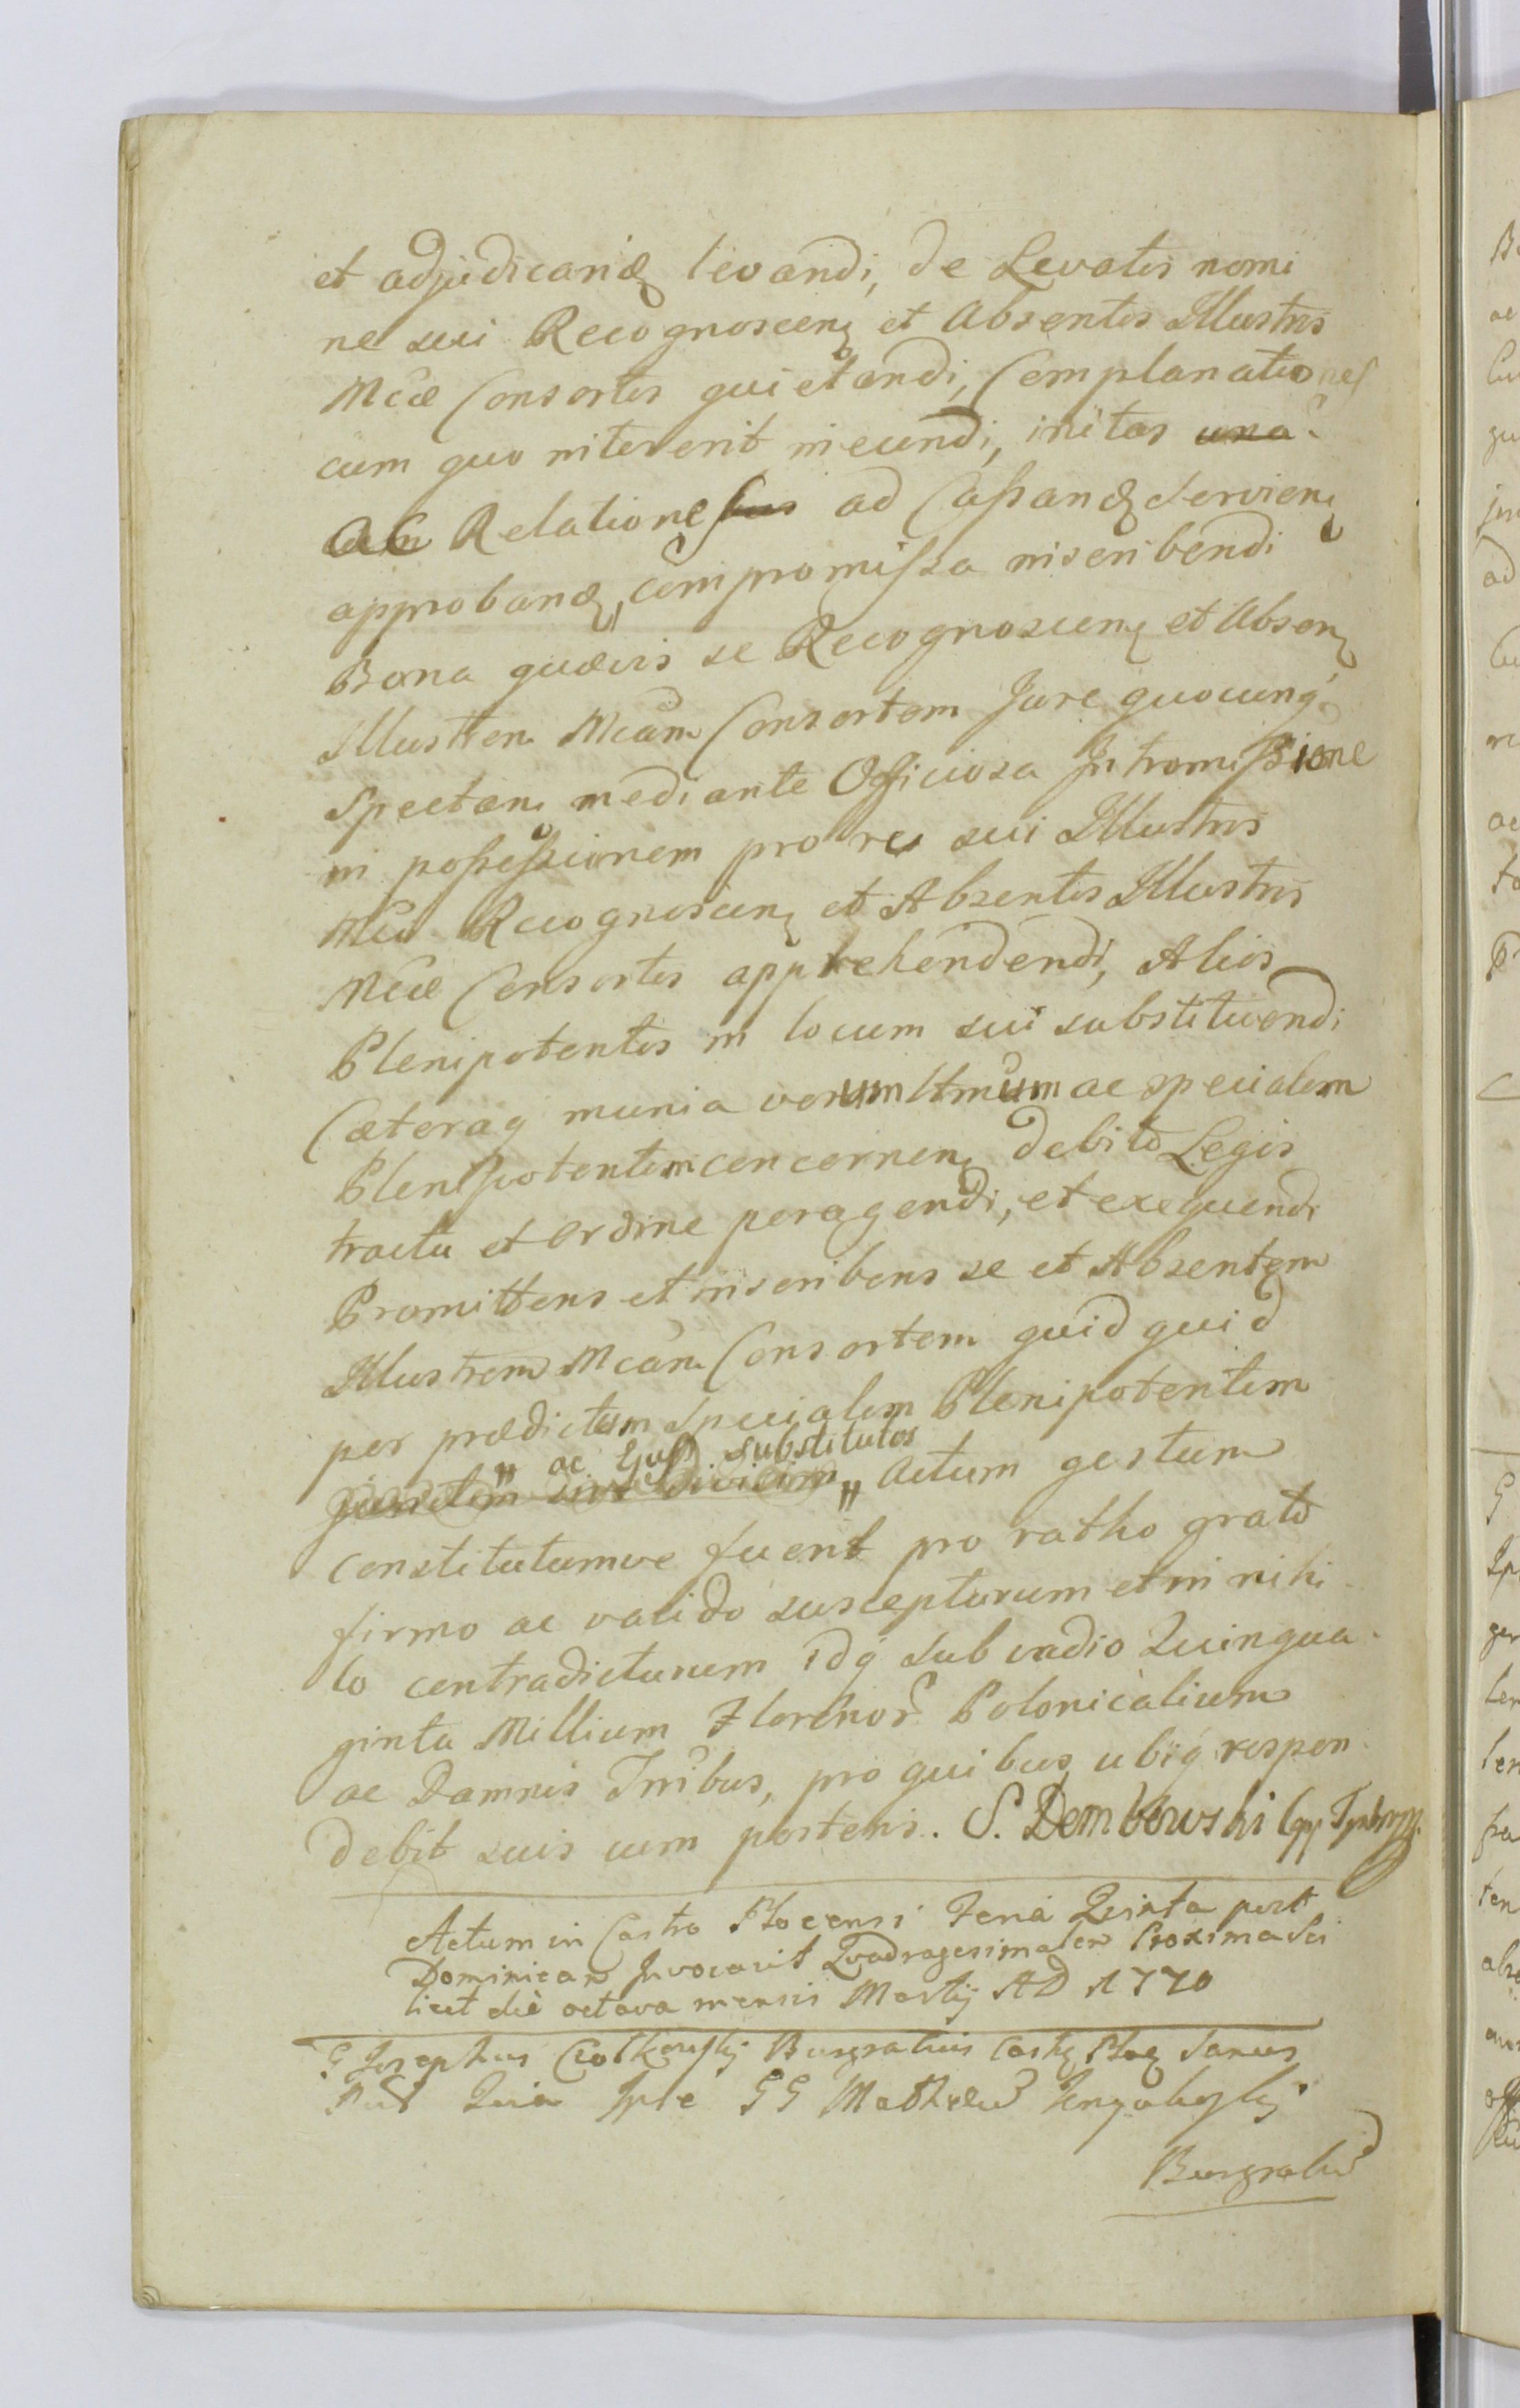 et adjudicand levandi, de Levatis nomi
ne sui Recognoscen et Absentis Illustris
Mcae Consortis quietandi, Complanationes
cum quo niteverit ineundi, initas una
ac Relatione ad Cassand Servien
approband, compromissa inscribendi
Bona quævis se Recognoscen et Absen
Illustren Mcam Consortem Jure quocunq
Spectan mediante Officiosa Intromissione
in possessionem pro re sui Illustris
Mci Recognoscen et Absentis Illustris
Mcae Consortis apprehendendi, Alios
Plenipotentes in locum sui substituendi
Cæteraq munia verum ltmum ac specialem
Plenipotentem concernen debito Legis
tractu et ordine peragendi, et exequendi
Promittens et inscribens se et Absentem
Illustrem Mcam Consortem quid quid
per prædictum Specialem Plenipotentem
ac Ejus substitutos
junctim sive divisim Actum gestum
constitutumve fuerit pro ratho grato
firmo ac valido suscepturum et in nihi
lo contradicturum idq sub vadio Quinqua
ginta Millium Florenor Polonicalium
ac Damnis Tribus, pro quibus ubiq respon
debit suis cum posteris. S. Dembowski
Actum in Castro Plocensi Feria Quinta post
Dominicam Invocavit Quadragesimalem Proxima Sci
licet die octava mensis Martij AD 1770
G Josephus Burgrabius
Quia Ipse GG Matheus
Burgrabius